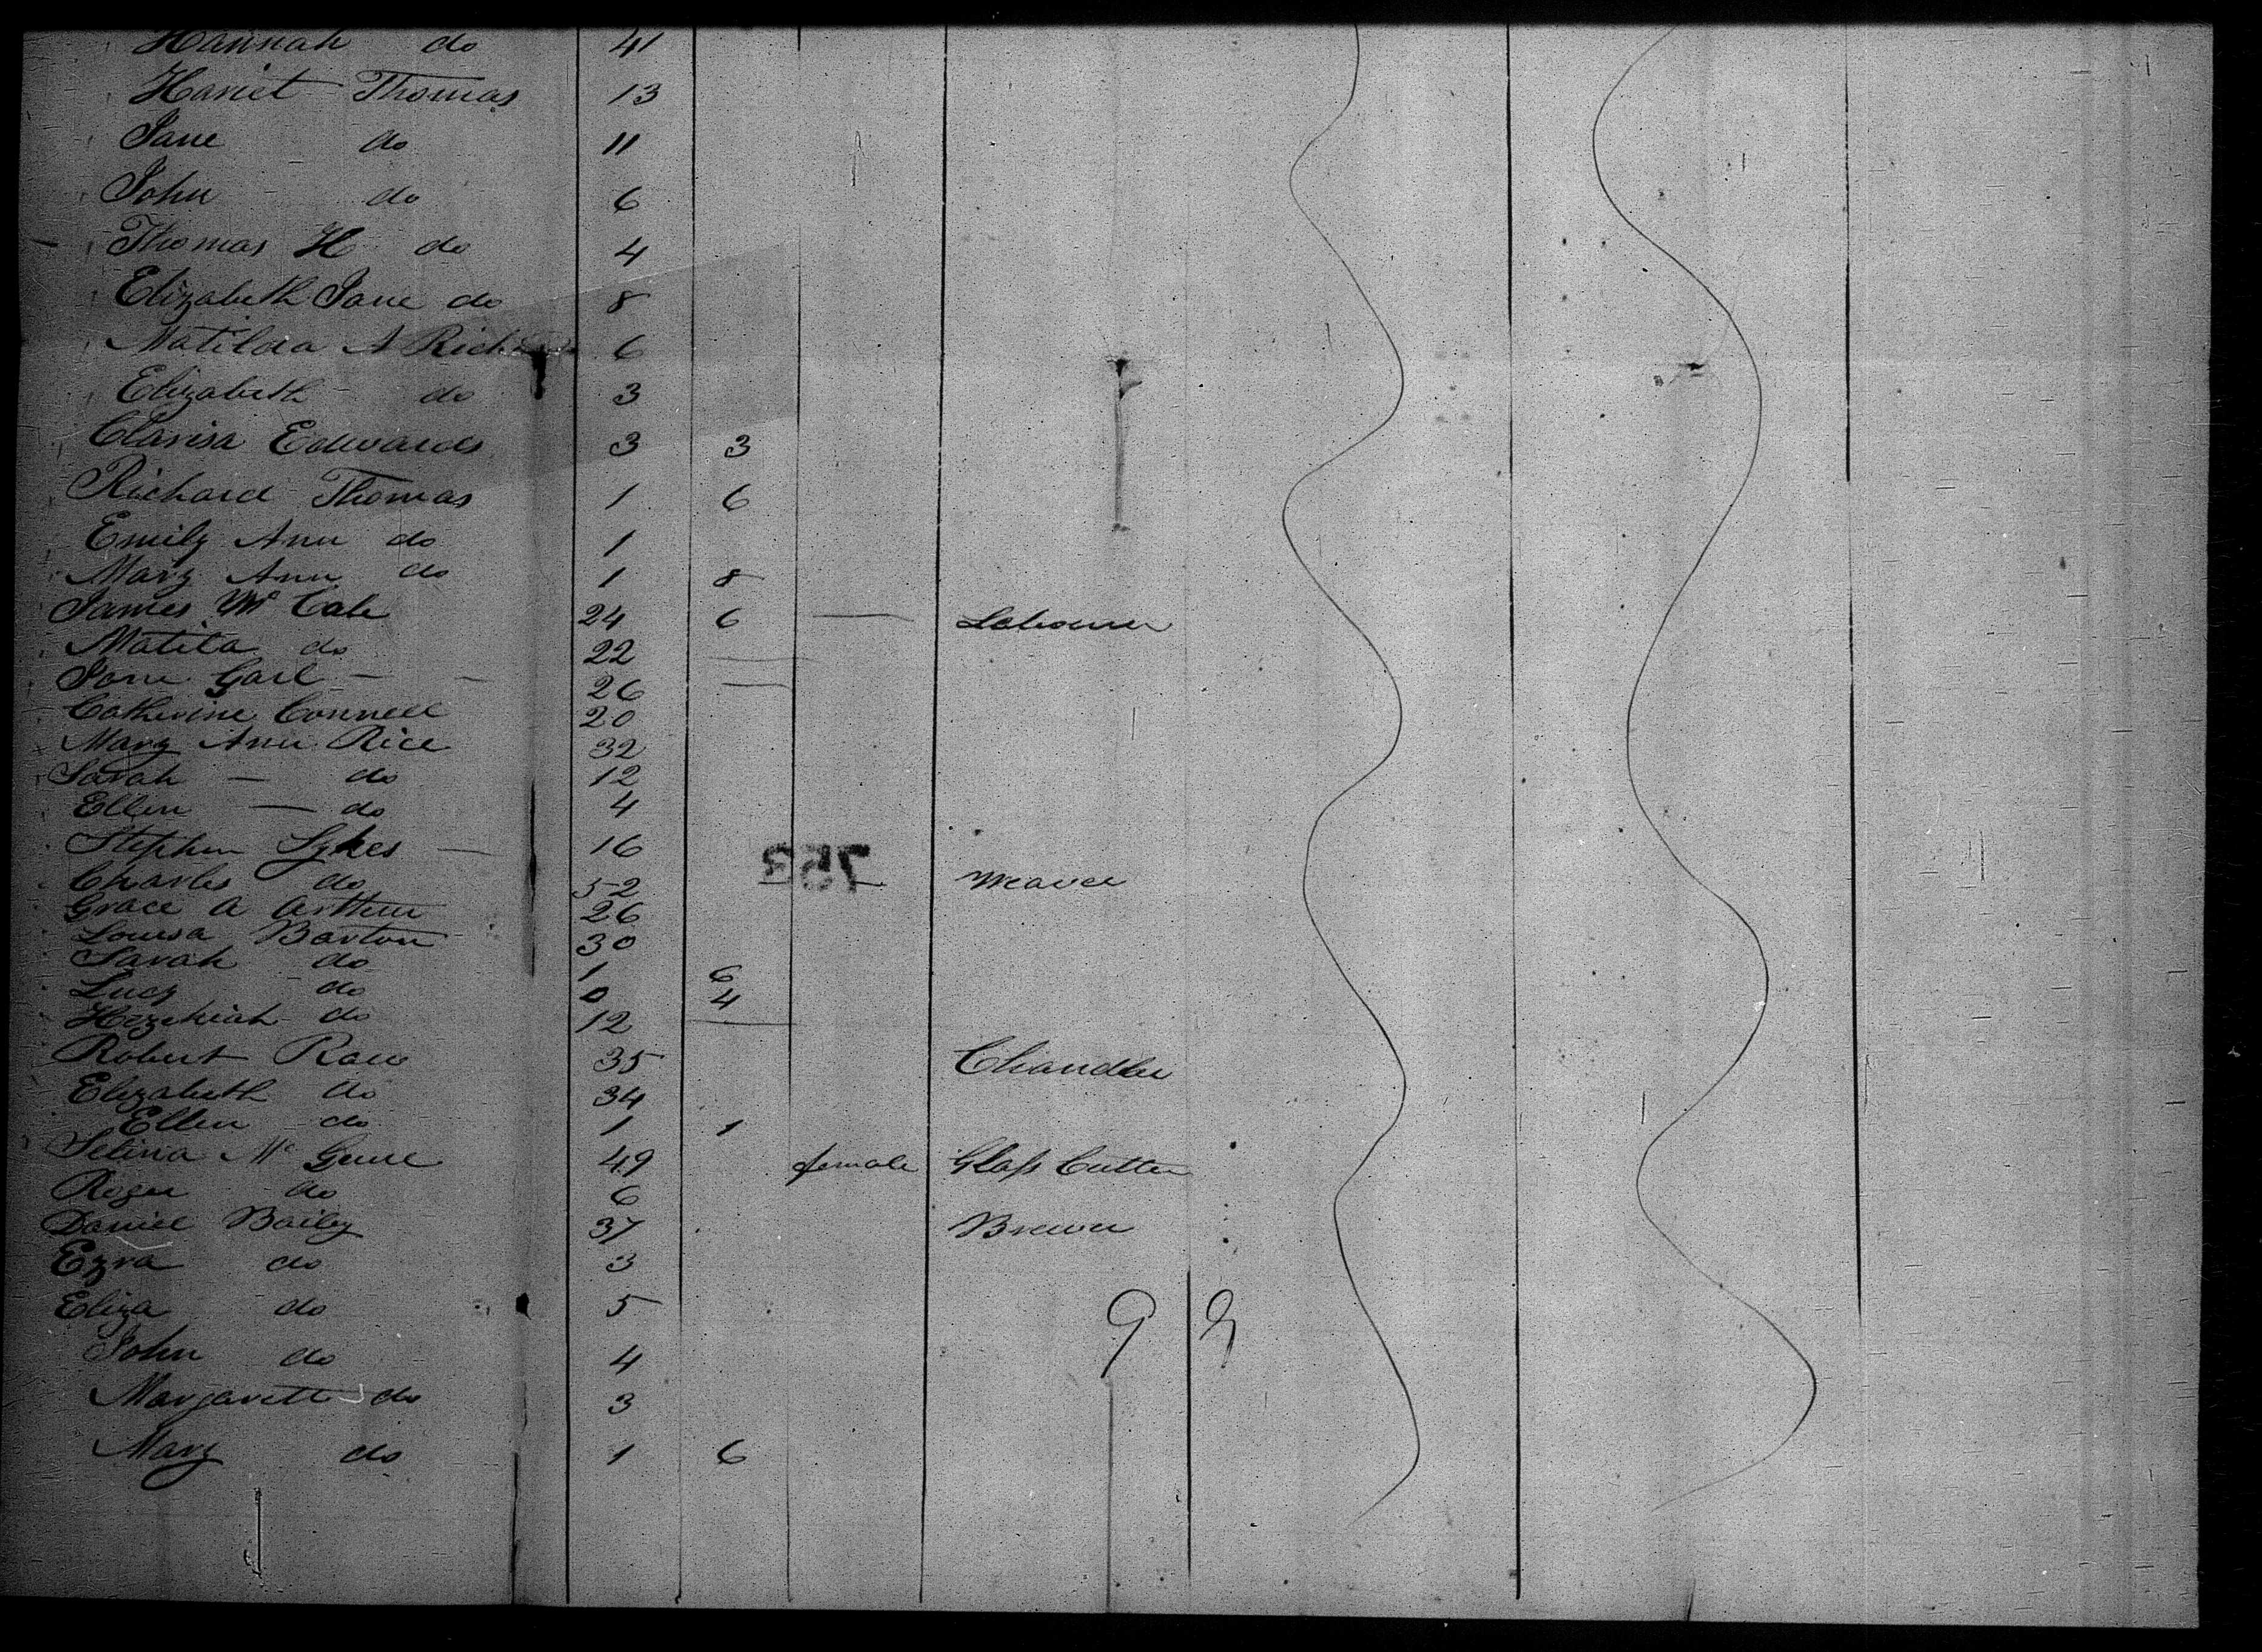 Hannah do 41
Hariet Thomas 13
Jane do 11
John do 6
Thomas H do 4
Elizabeth Jane do 8
Matilda A 6
Elizabeth do 3
Clarisa Edwards 3 3
Richard Thomas 1 6
Emily Ann do 1
Mary Ann do 1 8
James Mc Cale 24 6 — Labourer
Matila do 22
Jane Garl 26
Catherine Connell 20
Mary Ann Rice 32
Sarah — do 12
Ellen — do 4
Stephen Sykes — 16
Charles do 52 Weaver
Grace A Arthur 26
Louisa Barton 30
Sarah do 1 6
Lucy do 0 4
Hezekiah do 12
Robert Raw 35 Chandler
Elizabeth do 34
Ellen do 1 1
Selina Mc 49 female Glass Cutter
Roger do 6
Daniel Bailey 37 Brewer
Ezra do 3
Eliza do 5
John do 4
Margarett do 3
Mary do 1 6
753